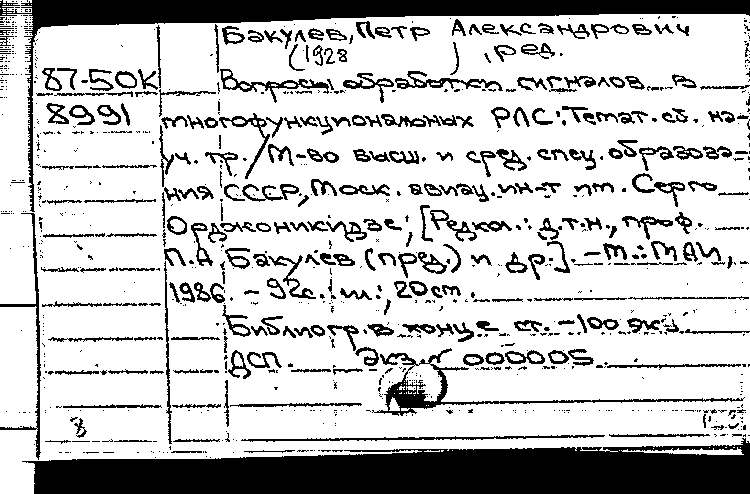 Бакулев, Петр Александрович
(1928 ) , ред.
87-50К Вопросы обработки сигналов в
8991 многофункциональных РЛС: Темат. сб. на-
уч. тр. / М-во высш. и сред. спец. образова-
ния СССР, Моск. авиац. ин-т им. Серго
Орджоникидзе; [Редкол.: д.т.н., проф.
П.А. Бакулев (пред.) и др.]. - М.: МАИ,
1986. - 92с.: ил.; 20см.
Библиогр. в конце ст. - 100 экз.
ДСП. Экз.№ 000005.
8